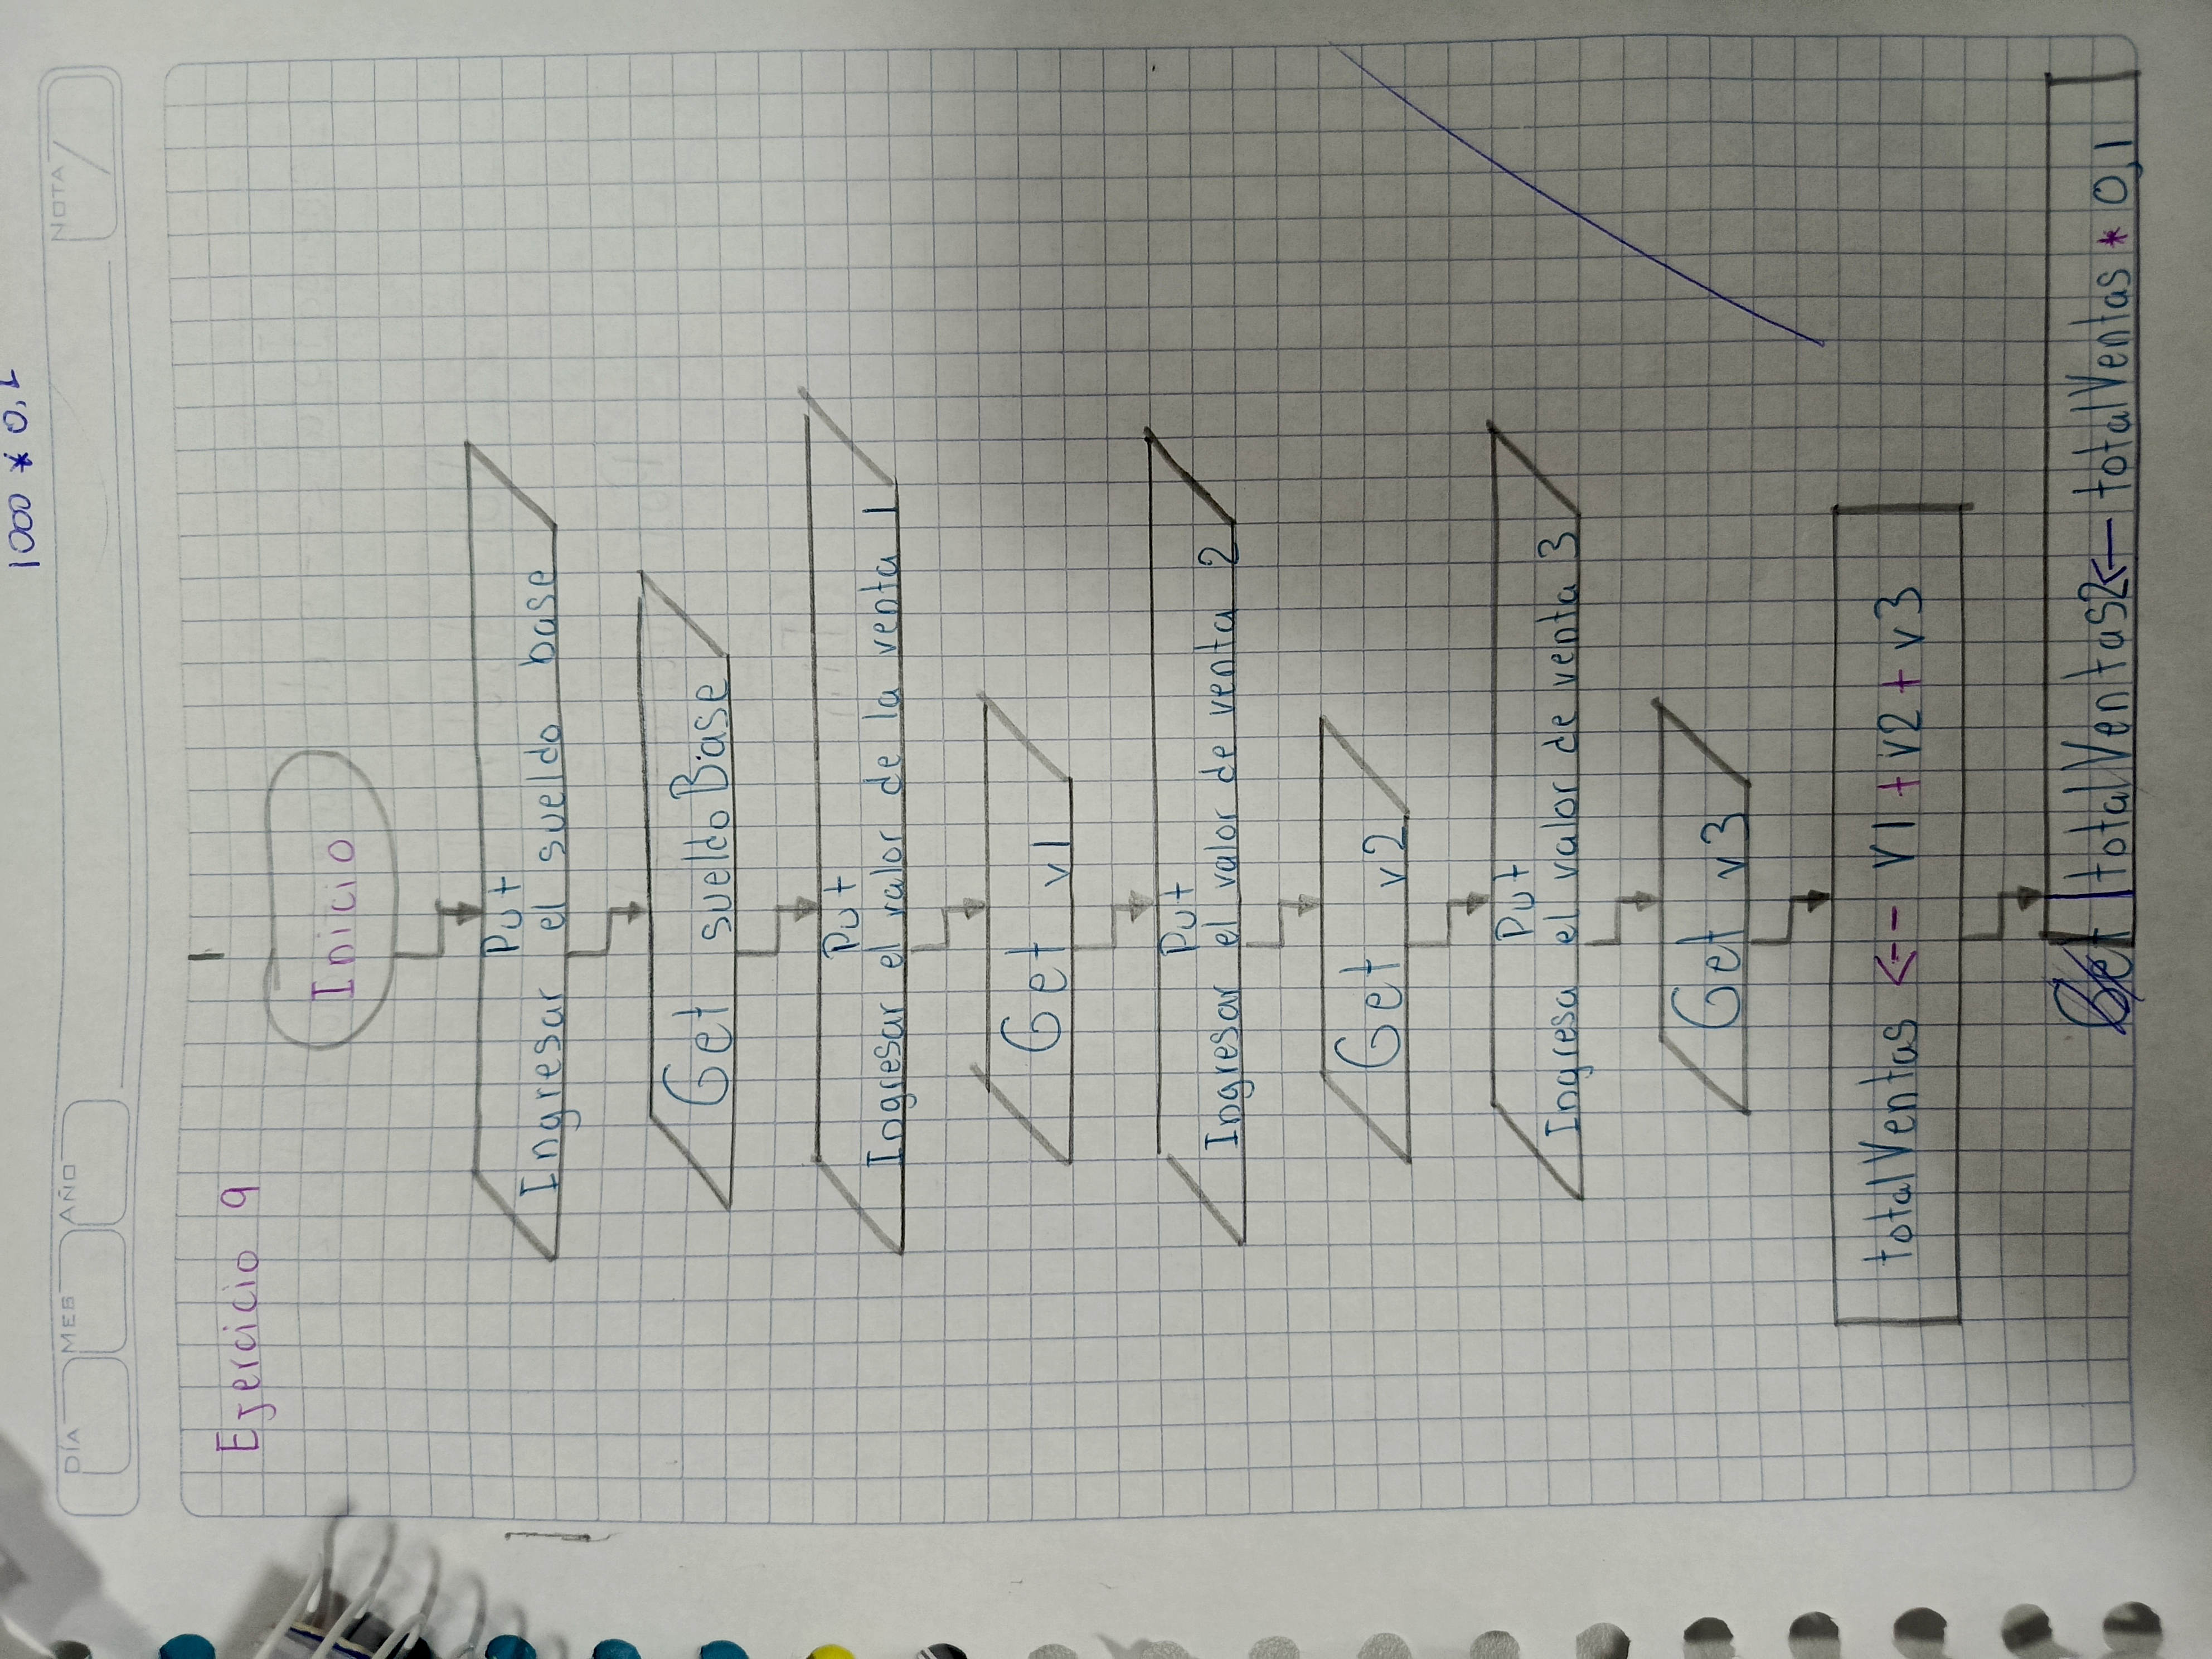 1000 * 0,1
DÍA MES AÑO NOTA
Ejercicio 9
Inicio
Put
Ingresar el sueldo base
Get sueldoBase
Put
Ingresar el valor de la venta 1
Get v1
Put
Ingresar el valor de venta 2
Get v2
Put
Ingresa el valor de venta 3
Get v3
totalVentas <-- v1 + v2 + v3
totalVentas2 <-- totalVentas * 0,1